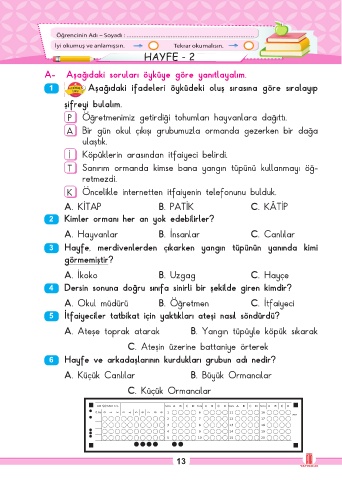 Öğrencinin Adı – Soyadı : ..............................................................
İyi okumuş ve anlamışsın. Tekrar okumalısın.
HAYFE - 2
A- Aşağıdaki soruları öyküye göre yanıtlayalım.
1 Aşağıdaki ifadeleri öyküdeki oluş sırasına göre sıralayıp
şifreyi bulalım.
P Öğretmenimiz getirdiği tohumları hayvanlara dağıttı.
A Bir gün okul çıkışı grubumuzla ormanda gezerken bir dağa
ulaştık.
İ Köpüklerin arasından itfaiyeci belirdi.
T Sanırım ormanda kimse bana yangın tüpünü kullanmayı öğ-
retmezdi.
K Öncelikle internetten itfaiyenin telefonunu bulduk.
A. KİTAP B. PATİK C. KÂTİP
2 Kimler ormanı her an yok edebilirler?
A. Hayvanlar B. İnsanlar C. Canlılar
3 Hayfe, merdivenlerden çıkarken yangın tüpünün yanında kimi
görmemiştir?
A. İkoko B. Uzgag C. Hayçe
4 Dersin sonuna doğru sınıfa sinirli bir şekilde giren kimdir?
A. Okul müdürü B. Öğretmen C. İtfaiyeci
5 İtfaiyeciler tatbikat için yaktıkları ateşi nasıl söndürdü?
A. Ateşe toprak atarak B. Yangın tüpüyle köpük sıkarak
C. Ateşin üzerine battaniye örterek
6 Hayfe ve arkadaşlarının kurdukları grubun adı nedir?
A. Küçük Canlılar B. Büyük Ormancılar
C. Küçük Ormancılar
13